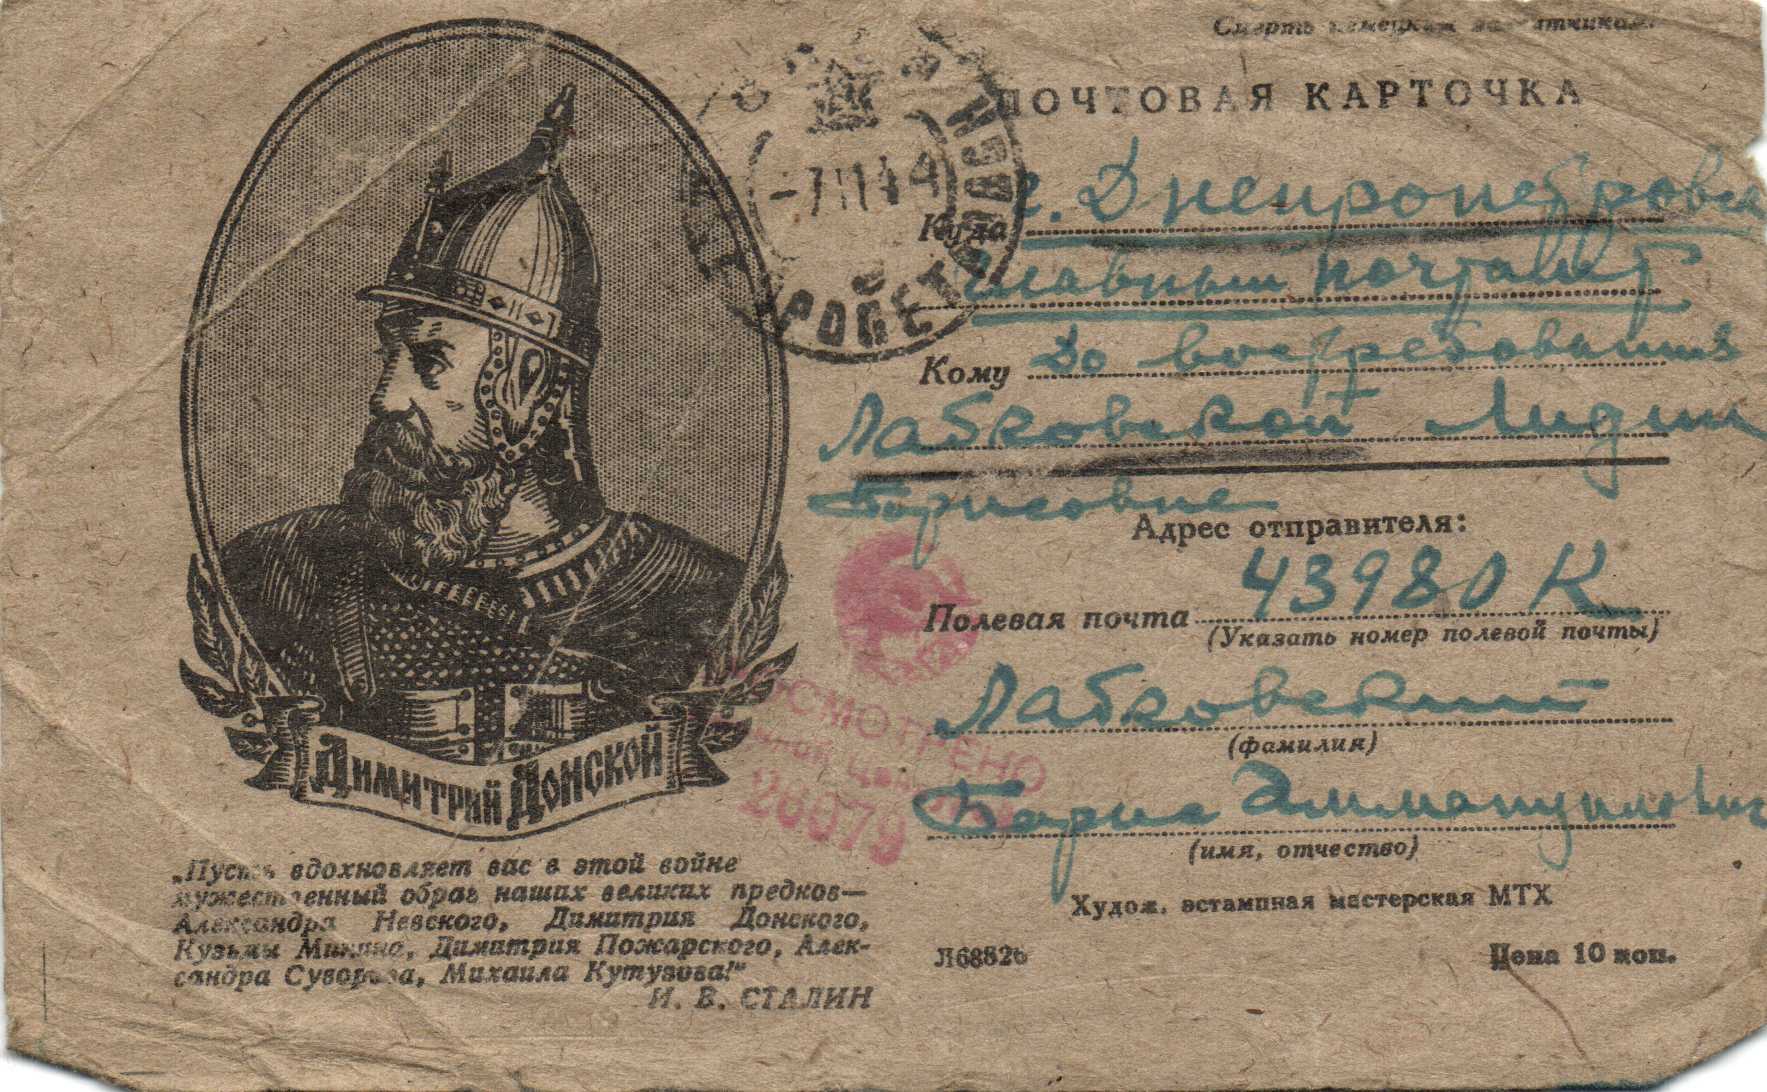 Смерть немецким захватчикам!
ПОЧТОВАЯ КАРТОЧКА
-7 11 44
Куда г. Днепропетровск
Главный почтамт
Кому До востребования
Лабковской Лидии
Борисовне
Адрес отправителя:
Полевая почта 43980 К
(Указать номер полевой почты)
Лабковский
(фамилия)
Борис Эммануилович
(имя, отчество)
Худож. эстампная мастерская МТХ
Л68826
Цена 10 коп.
ПРОСМОТРЕНО
Военной Цензурой
26079
ДИМИТРИЙ ДОНСКОЙ
„Пусть вдохновляет вас в этой войне
мужественный образ наших великих предков—
Александра Невского, Димитрия Донского,
Кузьмы Минина, Димитрия Пожарского, Алек-
сандра Суворова, Михаила Кутузова!"
И. В. СТАЛИН